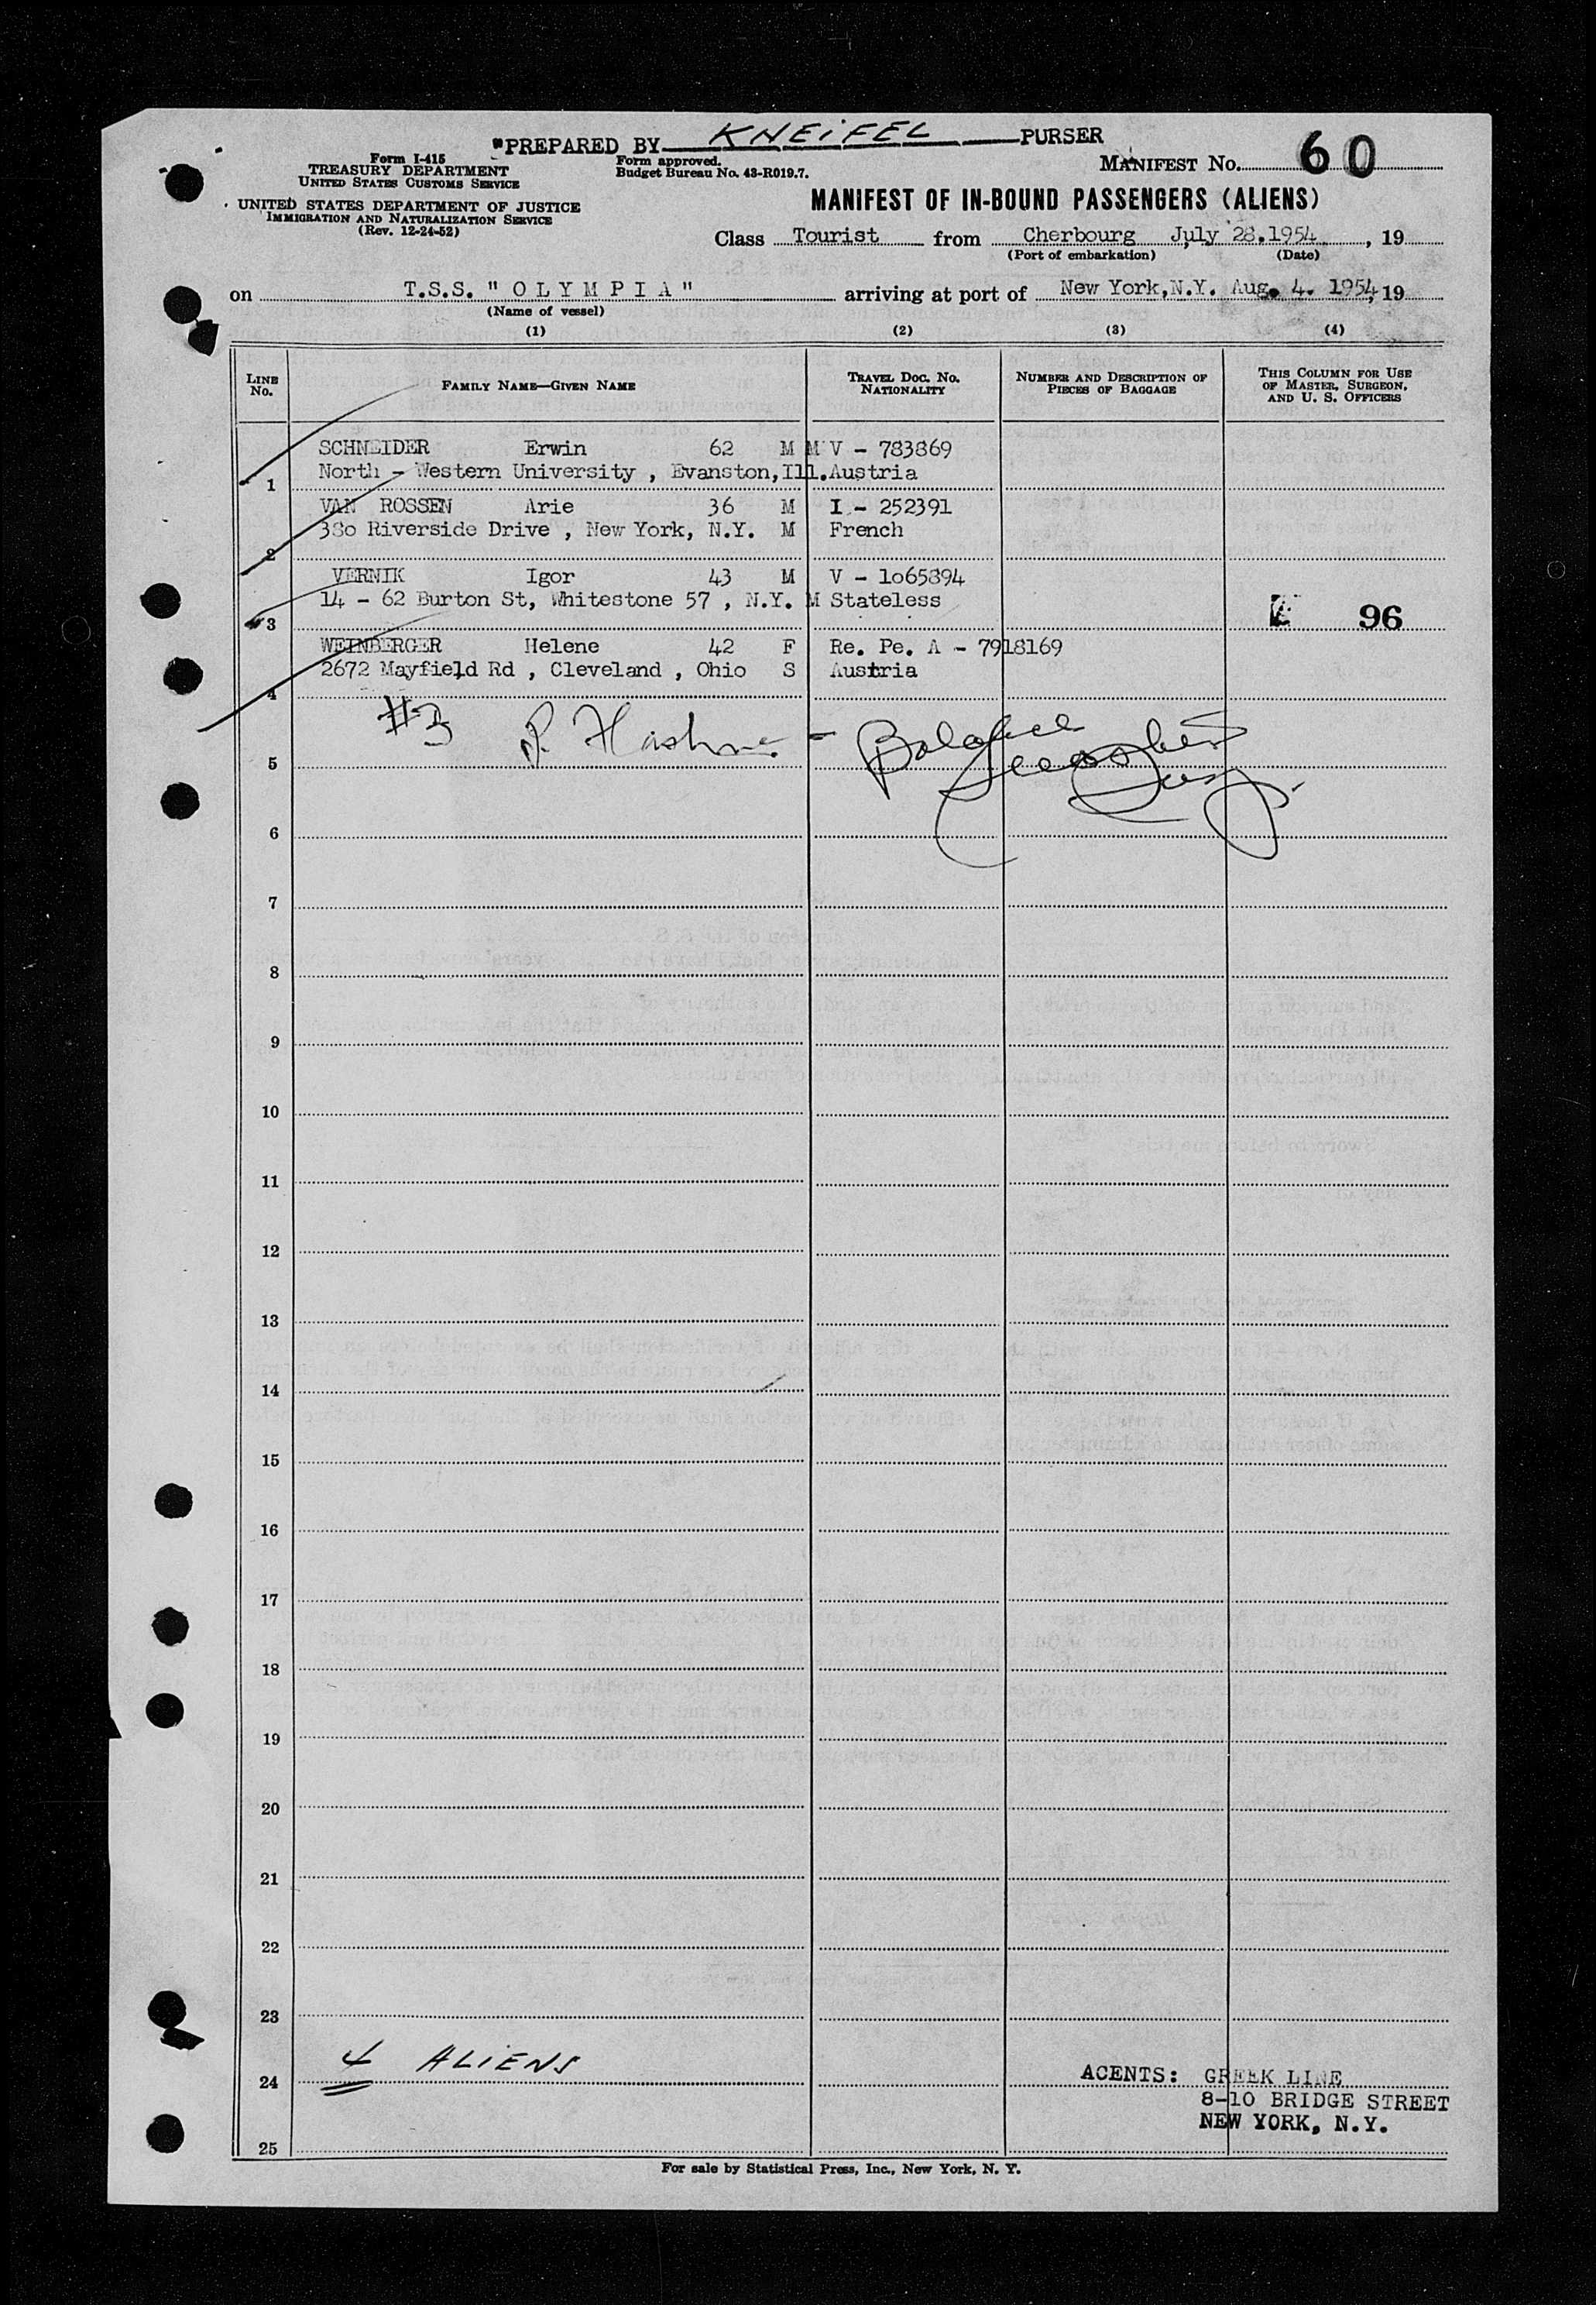 "PREPARED BY KNEIFEL PURSER
Form I-415
TREASURY DEPARTMENT
UNITED STATES CUSTOMS SERVICE
Form approved.
Budget Bureau No. 43-R019.7.
MANIFEST No. 60
UNITED STATES DEPARTMENT OF JUSTICE
IMMIGRATION AND NATURALIZATION SERVICE
(Rev. 12-24-52)
MANIFEST OF IN-BOUND PASSENGERS (ALIENS)
Class Tourist from Cherbourg July 28.1954, 19
(Port of embarkation) (Date)
on T.S.S. " O L Y M P I A " arriving at port of New York,N.Y. Aug. 4. 1954, 19
(Name of vessel)
(1) (2) (3) (4)
LINE No. FAMILY NAME—GIVEN NAME TRAVEL DOC. NO. NATIONALITY NUMBER AND DESCRIPTION OF PIECES OF BAGGAGE THIS COLUMN FOR USE OF MASTER, SURGEON, AND U. S. OFFICERS
SCHNEIDER Erwin 62 M M V - 783869
1 North - Western University , Evanston,Ill. Austria
VAN ROSSEN Arie 36 M I - 252391
2 380 Riverside Drive , New York, N.Y. M French
VERNIK Igor 43 M V - 1o65894
3 14 - 62 Burton St, Whitestone 57 , N.Y. M Stateless 96
WEINBERGER Helene 42 F Re. Pe. A - 7918169
4 2672 Mayfield Rd , Cleveland , Ohio S Austria
#3 P.
5
6
7
8
9
10
11
12
13
14
15
16
17
18
19
20
21
22
23
24 4 ALIENS AGENTS: GREEK LINE
8-10 BRIDGE STREET
NEW YORK, N.Y.
25
For sale by Statistical Press, Inc., New York, N. Y.